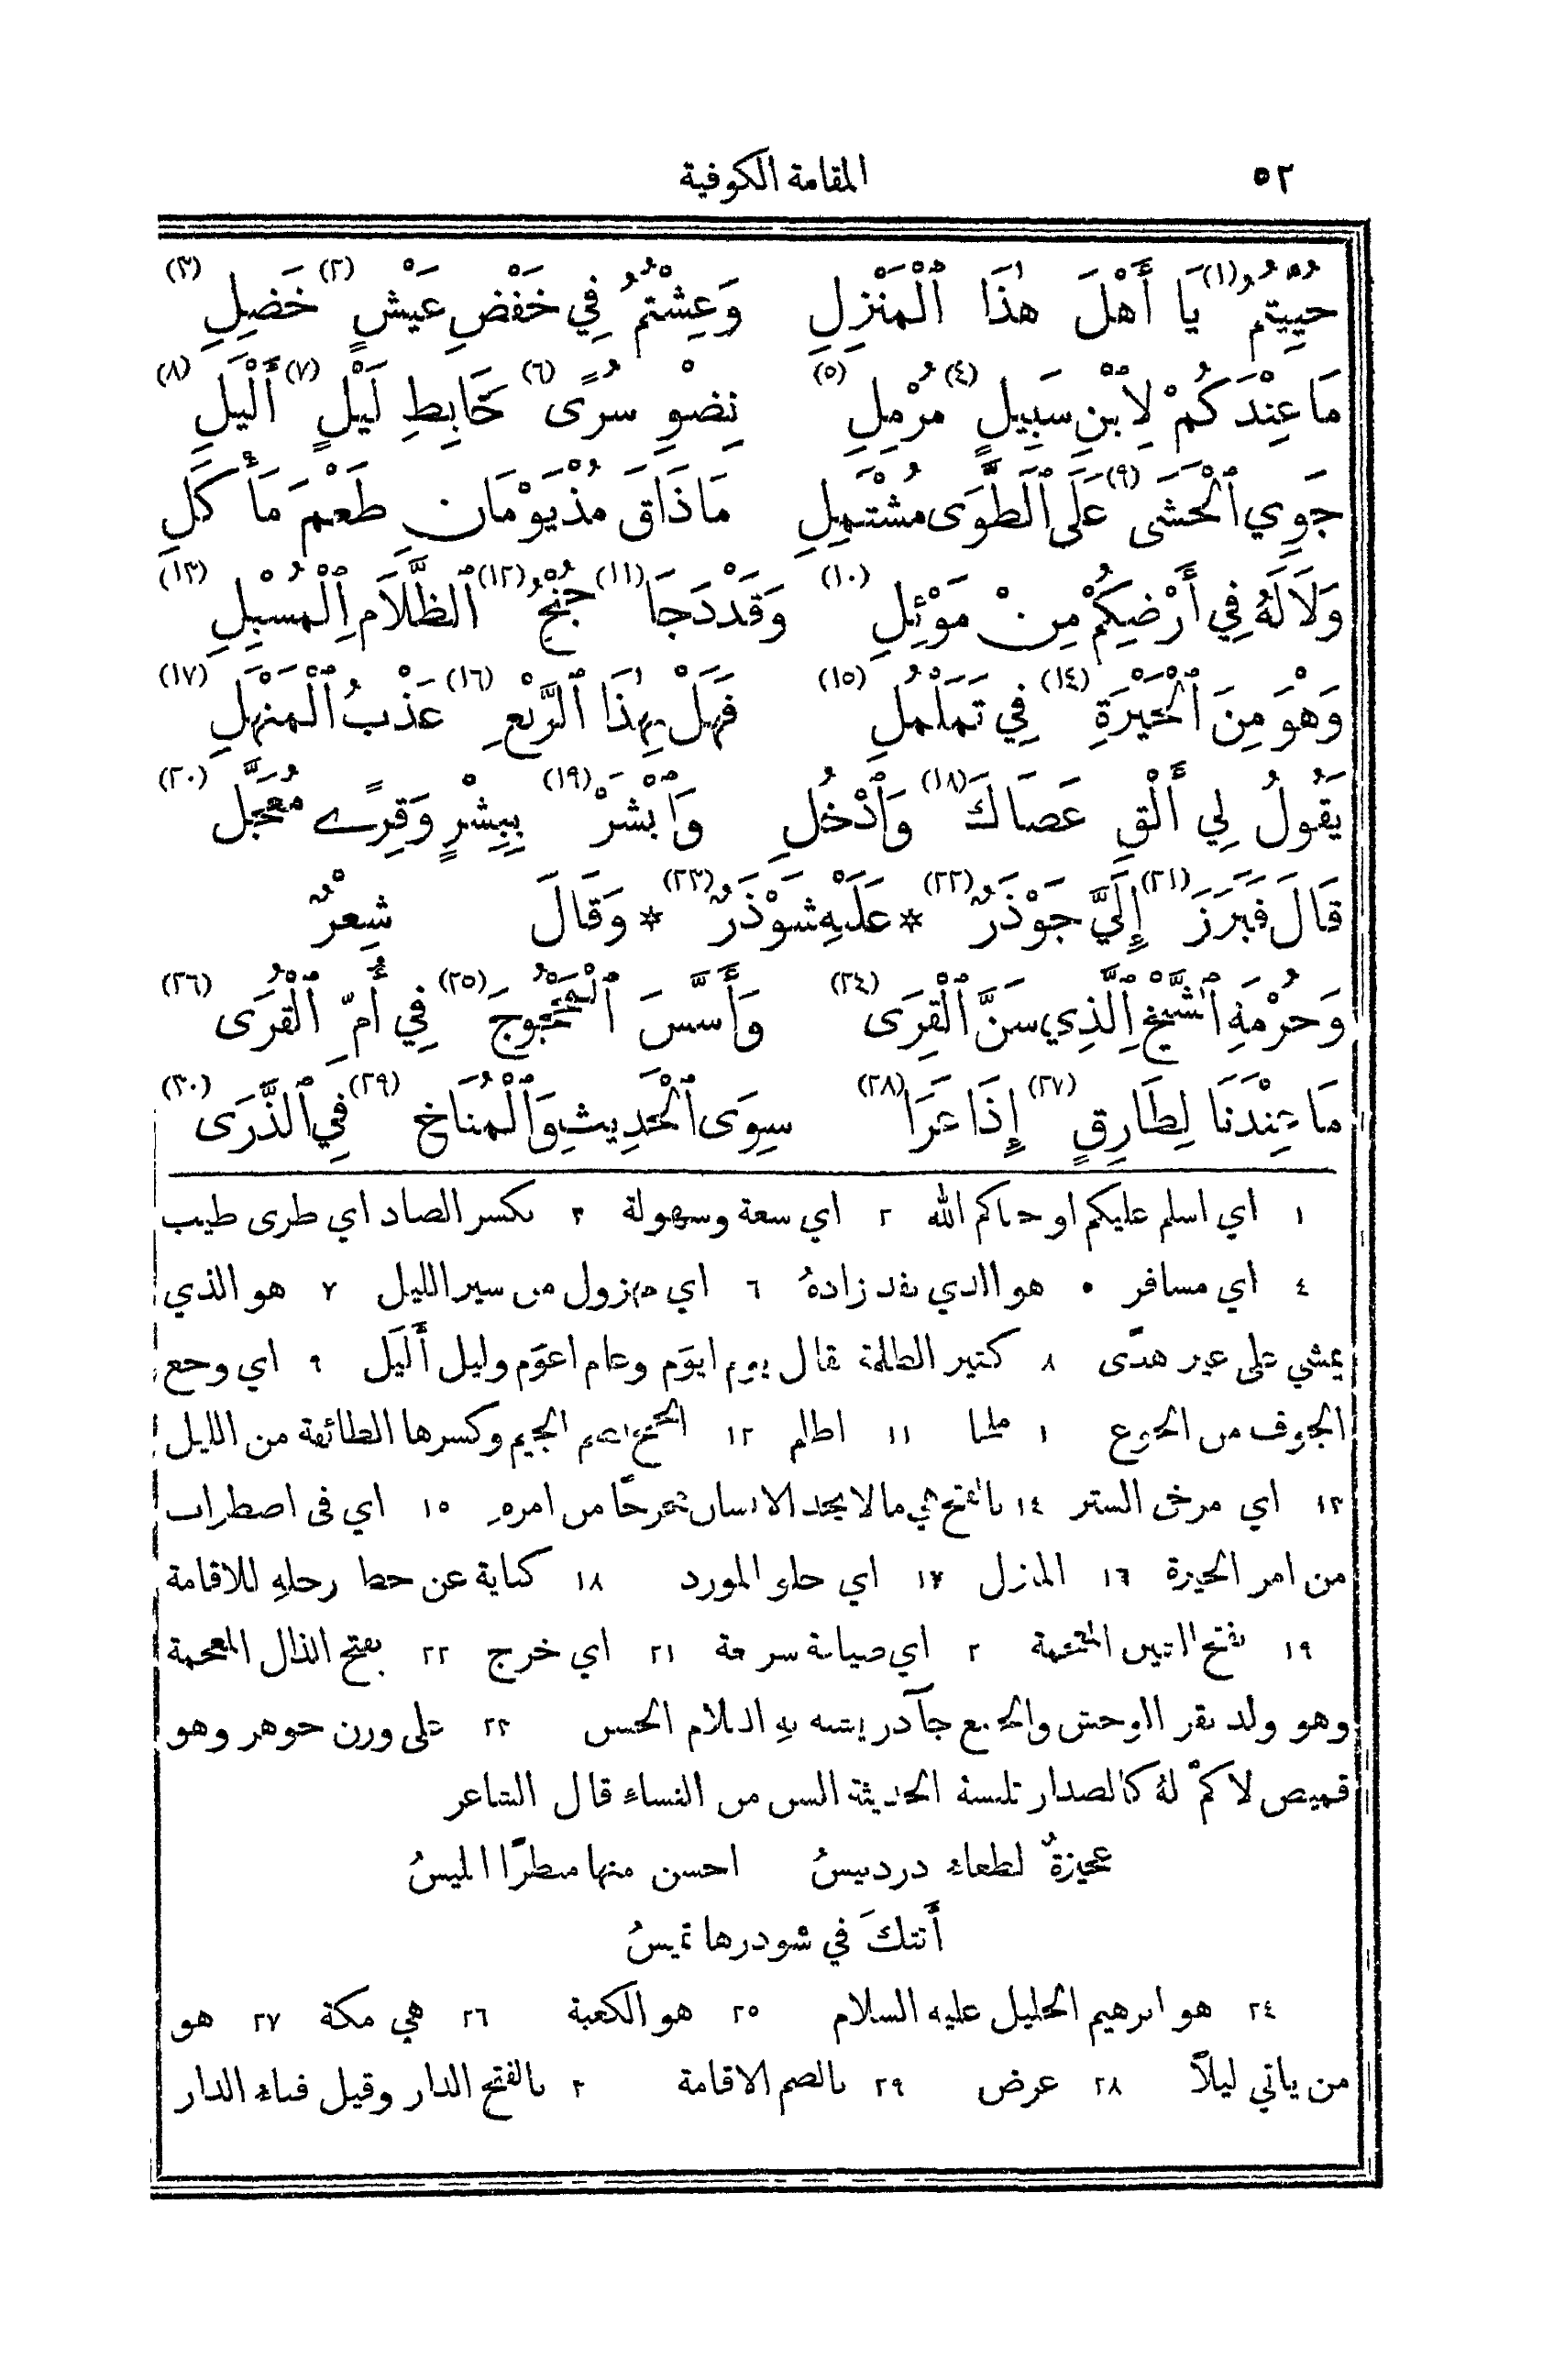 ٥٢ المقامة الكوفية
حُيِّيتُمُ (١) يَا أَهْلَ هٰذَا ٱلْمَنْزِلِ وَعِشْتُمُ فِي خَفْضِ عَيْشٍ (٢) خَضِلِ (٣)
مَا عِنْدَكُمْ لِٱبْنِ سَبِيلٍ (٤) مُرْمِلِ (٥) نِضْوِ سُرًى (٦) خَابِطِ لَيْلٍ (٧) أَلْيَلِ (٨)
جَوِي ٱلْحَشَى (٩) عَلَى ٱلطَّوَى مُشْتَمِلِ مَا ذَاقَ مُذْ يَوْمَانِ طَعْمَ مَأْكَلِ
وَلَا لَهُ فِي أَرْضِكُمْ مِنْ مَوْئِلِ (١٠) وَقَدْ دَجَا (١١) جُنْحُ (١٢) ٱلظَّلَامِ ٱلْمُسْبِلِ (١٣)
وَهْوَ مِنَ ٱلْحَيْرَةِ (١٤) فِي تَمَلْمُلِ (١٥) فَهَلْ بِهٰذَا ٱلرَّبْعِ (١٦) عَذْبُ ٱلْمَنْهَلِ (١٧)
يَقُولُ لِي أَلْقِ عَصَاكَ (١٨) وَٱدْخُلِ وَٱبْشَرْ (١٩) بِبِشْرٍ وَقِرًى مُعَجَّلِ (٢٠)
قَالَ فَبَرَزَ (٢١) إِلَيَّ جَوْذَرٌ (٢٢) * عَلَيْهِ شَوْذَرٌ (٢٣) * وَقَالَ شِعْرٌ
وَحُرْمَةِ ٱلشَّيْخِ ٱلَّذِي سَنَّ ٱلْقِرَى (٢٤) وَأَسَّسَ ٱلْمَحْجُوجَ (٢٥) فِي أُمِّ ٱلْقُرَى (٢٦)
مَا عِنْدَنَا لِطَارِقٍ (٢٧) إِذَا عَرَا (٢٨) سِوَى ٱلْحَدِيثِ وَٱلْمُنَاخِ (٢٩) فِي ٱلذَّرَى (٣٠)
١ اي اسلم عليكم او حياكم الله ٢ اي سعة وسهولة ٣ بكسر الضاد اي طري طيب
٤ اي مسافر ٥ هو الذي نفد زادهُ ٦ اي مهزول من سير الليل ٧ هو الذي
يمشي على غير هدًى ٨ كثير الظلمة يقال يوم ايوَم وعام اعوَم وليل أَليَل ٩ اي وجع
الجوف من الجوع ١٠ ملجا ١١ اظلم ١٢ الجنح بضم الجيم وكسرها الطائفة من الليل
١٣ اي مرخى الستر ١٤ بالفتح هي ما لا يجد الانسان مخرجًا من امرهِ ١٥ اي في اضطراب
من امر الحيرة ١٦ المنزل ١٧ اي حلو المورد ١٨ كناية عن حط رحلهِ للاقامة
١٩ بفتح الشين المعجمة ٢٠ اي ضيافة سريعة ٢١ اي خرج ٢٢ بفتح الذال المعجمة
وهو ولد بقر الوحش والجمع جآذر يشبه بهِ الغلام الحسن ٢٣ على وزن جوهر وهو
قميص لا كمّ لهُ كالصدار تلبسهُ الحديثة السن من النساء قال الشاعر
عجيزةٌ لطعاء دردبيسُ احسن منها منظرًا ابليسُ
أَتتكَ في شوذرها تميسُ
٢٤ هو ابرهيم الخليل عليه السلام ٢٥ هو الكعبة ٢٦ هي مكة ٢٧ هو
من ياتي ليلاً ٢٨ عرض ٢٩ بالضم الاقامة ٣٠ بالفتح الدار وقيل فناء الدار